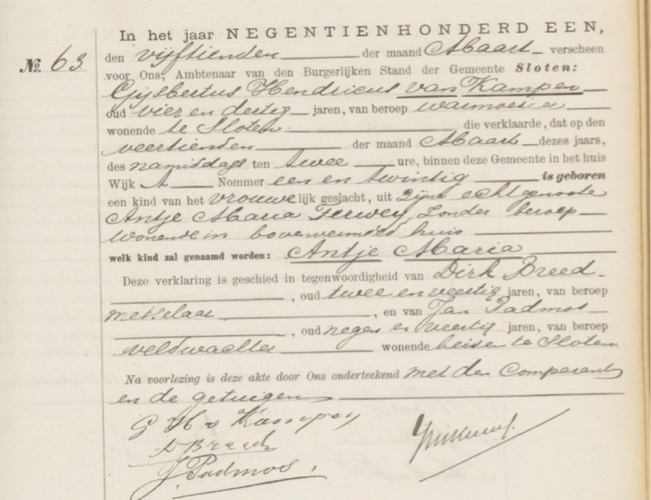 In het jaar NEGENTIENHONDERD EEN,
No. 63
den vijftienden der maand Maart verscheen
voor Ons, Ambtenaar van den Burgerlijken Stand der Gemeente Sloten:
Gijsbertus Hendricus van Kampen
oud vier en dertig jaren, van beroep warmoesier
wonende te Sloten die verklaarde, dat op den
veertienden der maand Maart dezes jaars,
des namiddags ten twee ure, binnen deze Gemeente in het huis
Wijk A Nommer een en twintig is geboren
een kind van het vrouwelijk geslacht, uit zijne echtgenoote
Antje Maria Terwey, zonder beroep
wonende in bovenvermeld huis
welk kind zal genaamd worden: Antje Maria
Deze verklaring is geschied in tegenwoordigheid van Dirk Breed
, oud twee en veertig jaren, van beroep
metselaar , en van Jan Padmos
, oud negen en veertig jaren, van beroep
veldwachter wonende beiden te Sloten
Na voorlezing is deze akte door Ons onderteekend met den Comparant
en de getuigen
G H v Kampen
D Breed
J. Padmos.